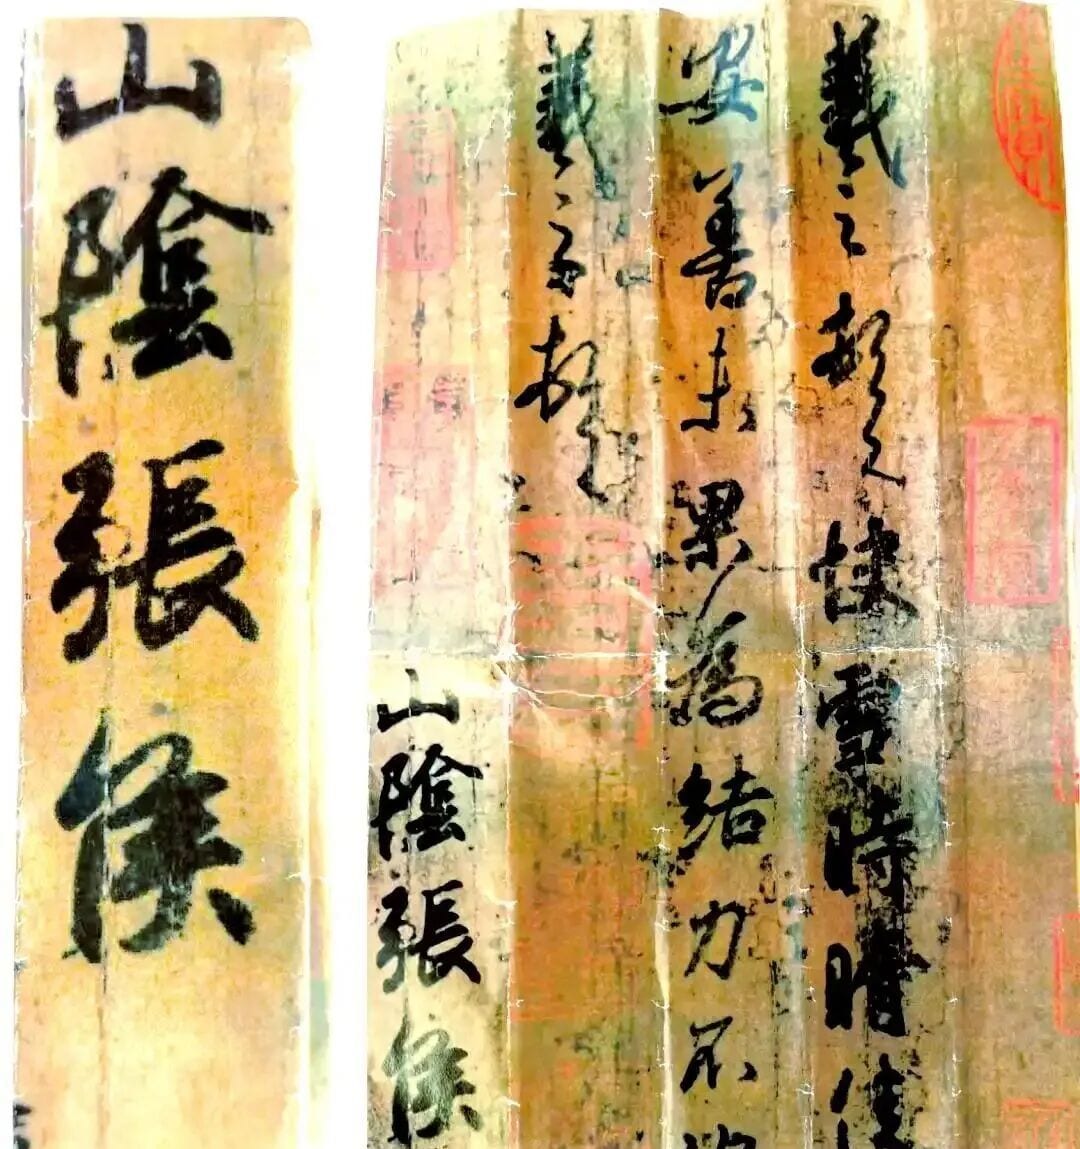 羲之頓首快雪時晴佳
安善未果為結力不
羲之頓首
山陰張侯
山陰張侯